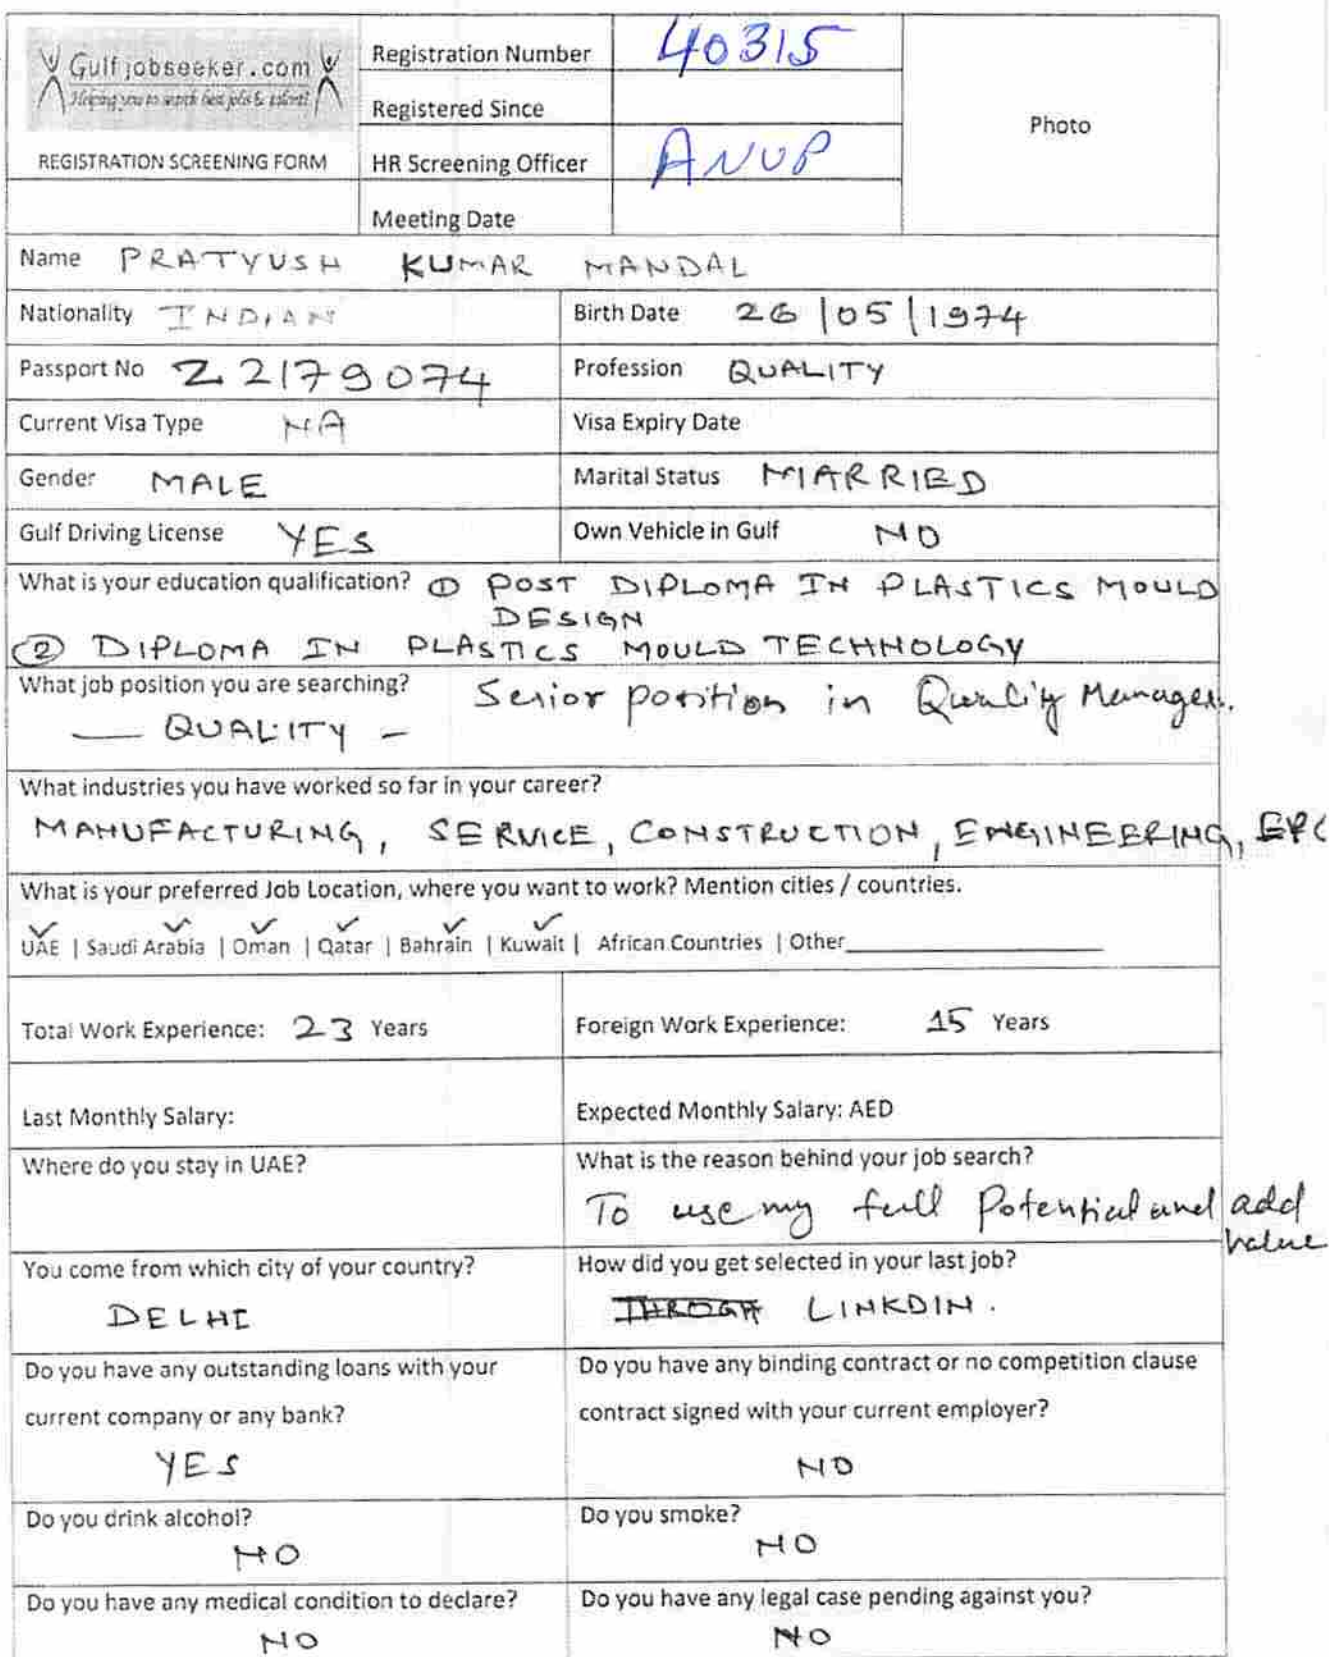 Gulfjobseeker.com
Helping you to search best jobs & talent!
REGISTRATION SCREENING FORM
Registration Number 40315
Registered Since
HR Screening Officer ANUP
Meeting Date
Photo
Name PRATYUSH KUMAR MANDAL
Nationality INDIAN
Birth Date 26/05/1974
Passport No Z2179074
Profession QUALITY
Current Visa Type NA
Visa Expiry Date
Gender MALE
Marital Status MARRIED
Gulf Driving License YES
Own Vehicle in Gulf NO
What is your education qualification? ① POST DIPLOMA IN PLASTICS MOULD
DESIGN
② DIPLOMA IN PLASTICS MOULD TECHNOLOGY
What job position you are searching? Senior position in Quality Manager.
— QUALITY -
What industries you have worked so far in your career?
MANUFACTURING, SERVICE, CONSTRUCTION, ENGINEERING, EPC
What is your preferred Job Location, where you want to work? Mention cities / countries.
UAE | Saudi Arabia | Oman | Qatar | Bahrain | Kuwait | African Countries | Other
Total Work Experience: 23 Years
Foreign Work Experience: 15 Years
Last Monthly Salary:
Expected Monthly Salary: AED
Where do you stay in UAE?
What is the reason behind your job search?
To use my full Potential and add
value
You come from which city of your country?
DELHI
How did you get selected in your last job?
THROGH LINKDIN.
Do you have any outstanding loans with your
current company or any bank?
YES
Do you have any binding contract or no competition clause
contract signed with your current employer?
NO
Do you drink alcohol?
NO
Do you smoke?
NO
Do you have any medical condition to declare?
NO
Do you have any legal case pending against you?
NO